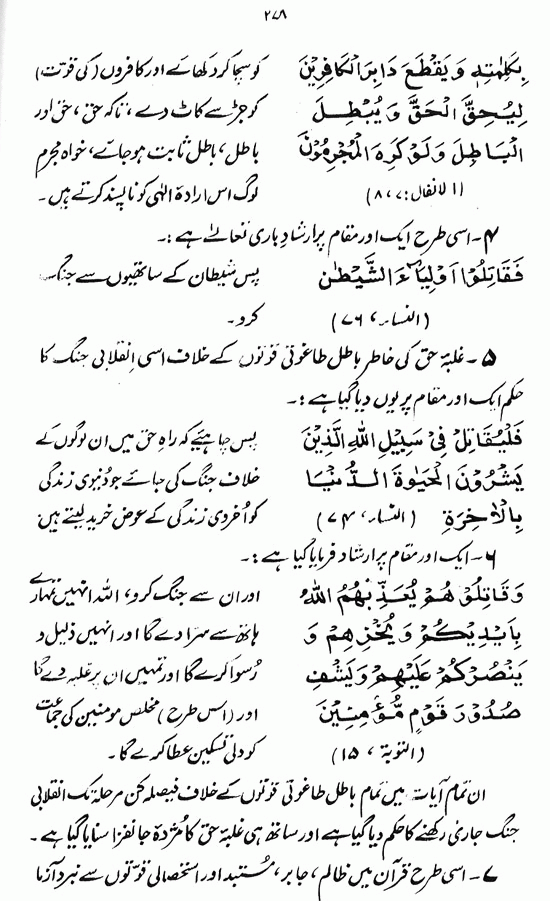 ۲۷۸
بِكَلِمٰتِهٖ وَيَقْطَعَ دَابِرَ الْكَافِرِيْنَ
لِيُحِقَّ الْحَقَّ وَيُبْطِلَ
الْبَاطِلَ وَلَوْ كَرِهَ الْمُجْرِمُوْنَ
(الانفال: ۷، ۸)
کو سچا کر دکھائے اور کافروں (کی قوت)
کو جڑ سے کاٹ دے، تاکہ حق، حق اور
باطل، باطل ثابت ہو جائے، خواہ مجرم
لوگ اس ارادۂ الٰہی کو ناپسند کرتے ہیں۔
۴۔ اسی طرح ایک اور مقام پر ارشادِ باری تعالےٰ ہے :۔
فَقَاتِلُوْۤا اَوْلِيَآءَ الشَّيْطٰنِ
(النساء، ۷۶)
پس شیطان کے ساتھیوں سے جنگ
کرو۔
۵۔ غلبۂ حق کی خاطر باطل طاغوتی قوتوں کے خلاف اسی انقلابی جنگ کا
حکم ایک اور مقام پر یوں دیا گیا ہے :۔
فَلْيُقَاتِلْ فِيْ سَبِيْلِ اللّٰهِ الَّذِيْنَ
يَشْرُوْنَ الْحَيٰوةَ الدُّنْيَا
بِالْاٰخِرَةِ (النساء، ۷۴)
پس چاہیئے کہ راہِ حق میں ان لوگوں کے
خلاف جنگ کی جائے جو دُنیوی زندگی
کو اُخروی زندگی کے عوض خرید لیتے ہیں
۶۔ ایک اور مقام پر ارشاد فرمایا گیا ہے :۔
وَقَاتِلُوْ هُمْ يُعَذِّبْهُمُ اللّٰهُ
بِاَيْدِيْكُمْ وَيُخْزِهِمْ وَ
يَنْصُرْكُمْ عَلَيْهِمْ وَيَشْفِ
صُدُوْرَ قَوْمٍ مُّؤْمِنِيْنَ
(التوبة، ۱۵)
اور ان سے جنگ کرو، اللہ انہیں تمہارے
ہاتھ سے سزا دے گا اور انہیں ذلیل و
رُسوا کرے گا اور تمہیں ان پر غلبہ دے گا
اور (اس طرح) مخلص مومنین کی جماعت
کو دلی تسکین عطا کرے گا۔
ان تمام آیات میں تمام باطل طاغوتی قوتوں کے خلاف فیصلہ کن مرحلہ تک انقلابی
جنگ جاری رکھنے کا حکم دیا گیا ہے اور ساتھ ہی غلبۂ حق کا مُژدہ جانفزا سنایا گیا ہے۔
۷۔ اسی طرح قرآن میں ظالم، جابر، مُستبد اور استحصالی قوتوں سے نبرد آزما